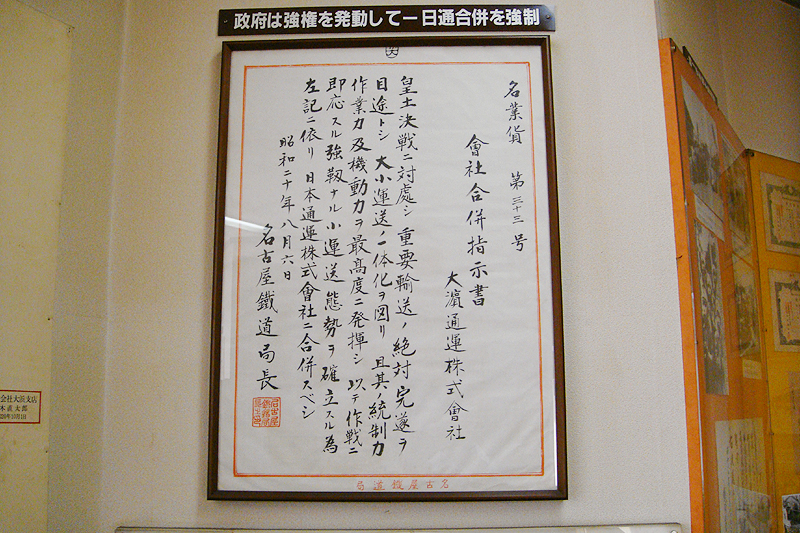 政府は強権を発動して一日通合併を強制
名業貨 第三十三号
會社合併指示書
大濵通運株式會社
皇土決戦ニ対處シ重要輸送ノ絶対完遂ヲ
目途トシ大小運送ノ一体化ヲ図リ且其ノ統制力
作業力及機動力ヲ最高度ニ発揮シ以テ作戦ニ
即応スル強靱ナル小運送態勢ヲ確立スル為
左記ニ依リ日本通運株式會社ニ合併スベシ
昭和二十年八月六日
名古屋鐵道局長
名古屋鐵道局
会社大浜支店
木直太郎